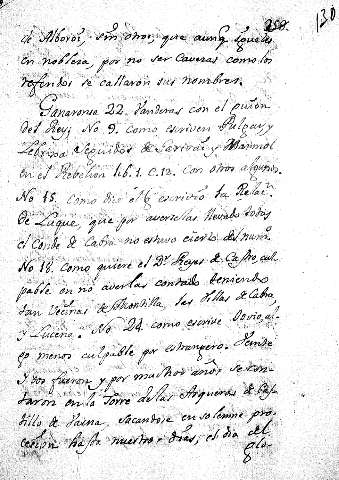 258.
130
de Alboroz. sin otros, que aunq iguales
en nobleza, por no ser Caveras como los
referidos se callaron sus nombres.
Ganaronse 22. Vanderas con el puñon
del Rey, No 9. como escriven Pulgar, y
Lebrixa seguidos de Garivai, y Marmol
en el Rebelion lib. 1. C. 12. Con otros algunos.
No 15. como dio el q escrivio la Relacn
De Luque, que por averselas llevado todas
el Conde de Cabra no estuvo cierto del num.
No 18. como quiere el Dr. Reyes de Castro, cul
pable en no averlas contado teniendo
tan Vecinas de Montilla, las Villas de Cabra,
y Lucena. No 24 como escrive Jovio, al
go menos culpable por estrangero. Veinte
y dos fueron, y por muchos años se con
taron en la Torre de las Arqueras del Cas
tillo de Vaena, sacandose en solemne pro
cesion hasta nuestros dias, el dia del
glo